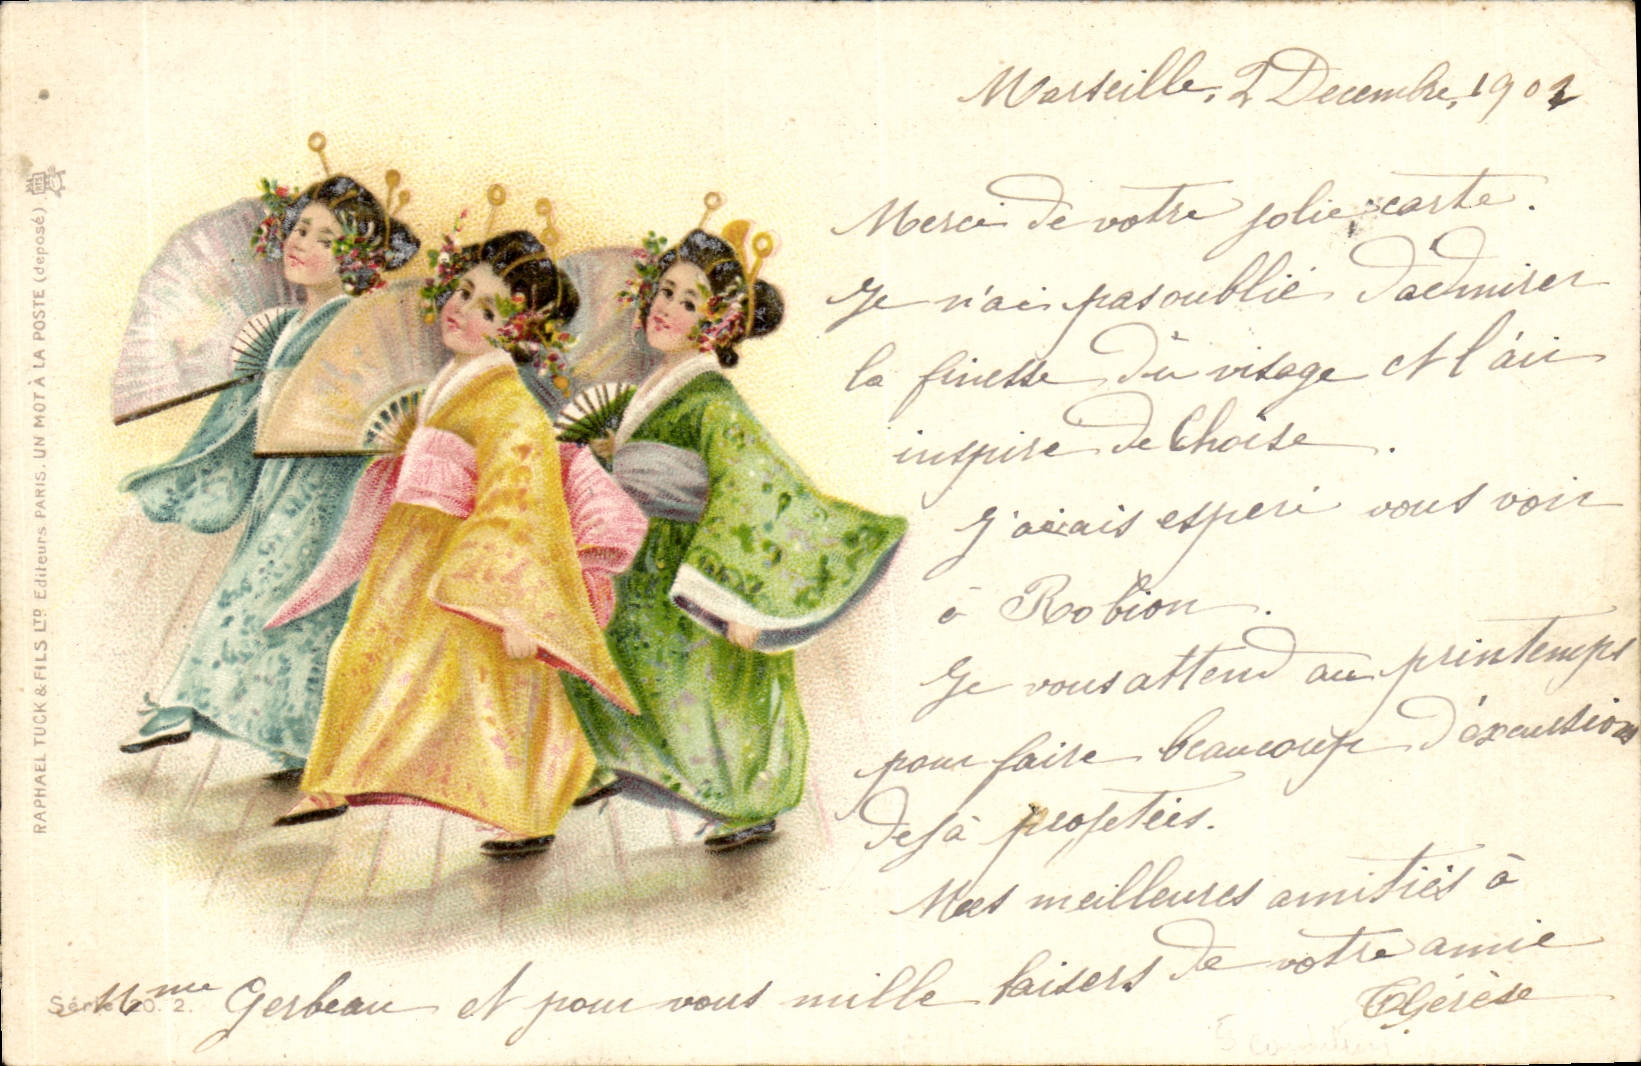 Marseille, 2 Decembre, 1902
Merci de votre jolie carte.
Je n'ai pas oublié d'admirer
la finesse du visage et l'air
inspiré de Thoïse.
J'avais esperé vous voir
à Robion.
Je vous attend au printemps
pour faire beaucoup d'excursions
dejà projetées.
Mes meilleures amitiés à
Mme Gerbeau et pour vous mille baisers de votre amie
Thérèse
RAPHAEL TUCK & FILS LTD Editeurs PARIS. UN MOT À LA POSTE (deposé).
Série 20. 2.